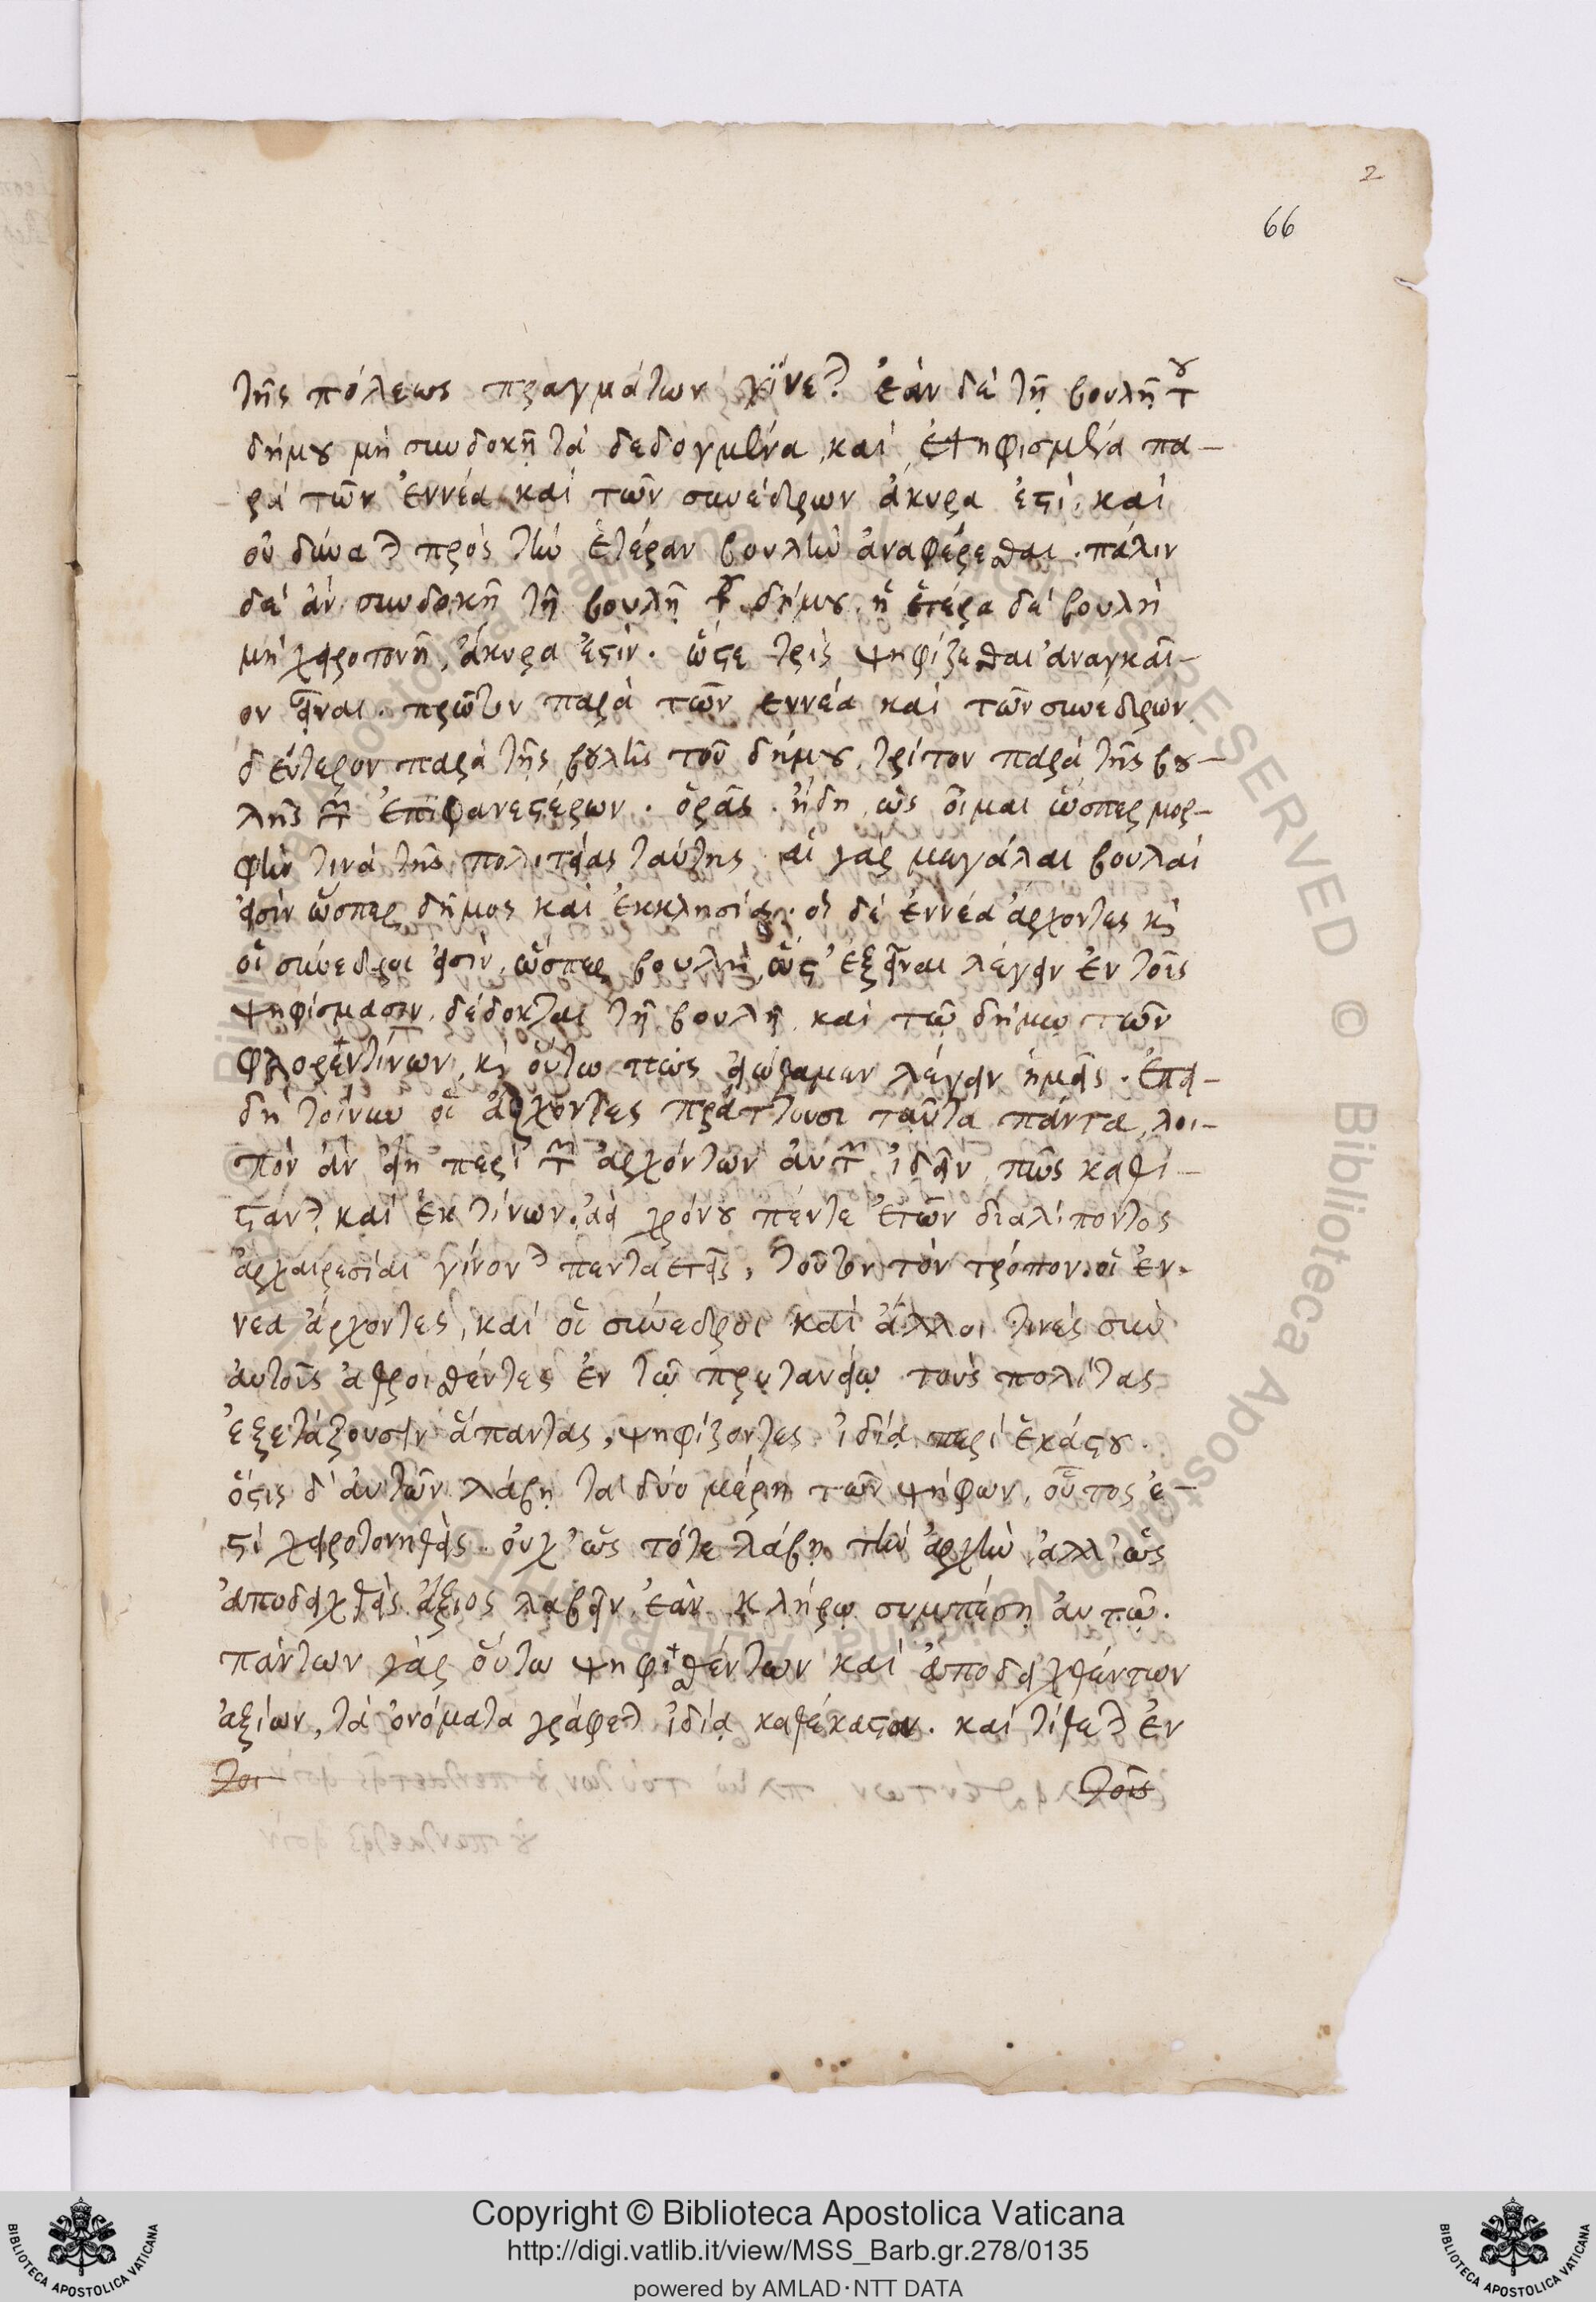 2
66
τῆς πόλεως πραγμάτων γίνεται. ἐὰν δὲ τῇ βουλῇ τοῦ
δήμου μὴ συνδοκῇ τὰ δεδογμένα, καὶ ἐψηφισμένα πα-
ρὰ τῶν ἐννέα καὶ τῶν συνέδρων ἄκυρα ἐστὶ, καὶ
οὐ δύναται πρὸς τὴν ἑτέραν βουλὴν ἀναφέρεσθαι. πάλιν
δὲ ἂν συνδοκῇ τῇ βουλῇ τοῦ δήμου, ἡ ἑτέρα δὲ βουλὴ
μὴ χειροτονῇ, ἄκυρα ἐστίν. ὥστε τρὶς ψηφίζεσθαι ἀναγκαῖ-
ον εἶναι. πρῶτον παρὰ τῶν ἐννέα καὶ τῶν συνέδρων
δεύτερον παρὰ τῆς βουλῆς τοῦ δήμου, τρίτον παρὰ τῆς βου-
λῆς τῶν ἐπιφανεστέρων. ὁρᾷς ἤδη, ὡς οἶμαι ὥσπερ μορ-
φὴν τινὰ τῆς πολιτείας ταύτης. αἱ γὰρ μεγάλαι βουλαὶ
εἰσὶν ὥσπερ δῆμος καὶ ἐκκλησία. οἱ δὲ ἐννέα ἄρχοντες καὶ
οἱ σύνεδροι εἰσὶν, ὥσπερ βουλὴ, ὥστ' ἐξεῖναι λέγειν ἐν τοῖς
ψηφίσμασιν, δέδοκται τῇ βουλῇ, καὶ τῷ δήμῳ τῶν
Φλορεντίνων, καὶ οὕτω πως εἰώθαμεν λέγειν ἡμεῖς. Ἐπει-
δὴ τοίνυν οἱ ἄρχοντες πράττουσι ταῦτα πάντα, λοι-
πὸν ἂν εἴη περὶ τῶν ἀρχόντων αὐτῶν ἰδεῖν, πῶς καθί-
στανται καὶ ἐκ τίνων. ἀεὶ χρόνου πέντε ἐτῶν διαλίποντος
ἀρχαιρεσίαι γίνονται πενταετεῖς, τοῦτον τὸν τρόπον. οἱ ἐν-
νέα ἄρχοντες, καὶ οἱ σύνεδροι καὶ ἄλλοι τινὲς σὺν
αὐτοῖς ἀθροισθέντες ἐν τῷ πρυτανείῳ τοὺς πολίτας
ἐξετάζουσιν ἅπαντας, ψηφίζοντες ἰδίᾳ περὶ ἑκάστου.
ὅστις δ' αὐτῶν λάβῃ τὰ δύο μέρη τῶν ψήφων, οὗτος ἐ-
στὶ χειροτονηθεὶς. οὐχ' ὡς τότε λάβῃ τὴν ἀρχὴν, ἀλλ' ὡς
ἀποδειχθεὶς ἄξιος λαβεῖν, ἐὰν κλήρῳ συμπέσῃ αὐτῷ.
πάντων γὰρ οὕτω ψηφισθέντων καὶ ἀποδειχθέντων
ἀξίων, τὰ ὀνόματα γράφεται ἰδίᾳ καθέκαστον. καὶ τίθεται ἐν
τοι
τοῖς
Copyright © Biblioteca Apostolica Vaticana
http://digi.vatlib.it/view/MSS_Barb.gr.278/0135
powered by AMLAD·NTT DATA